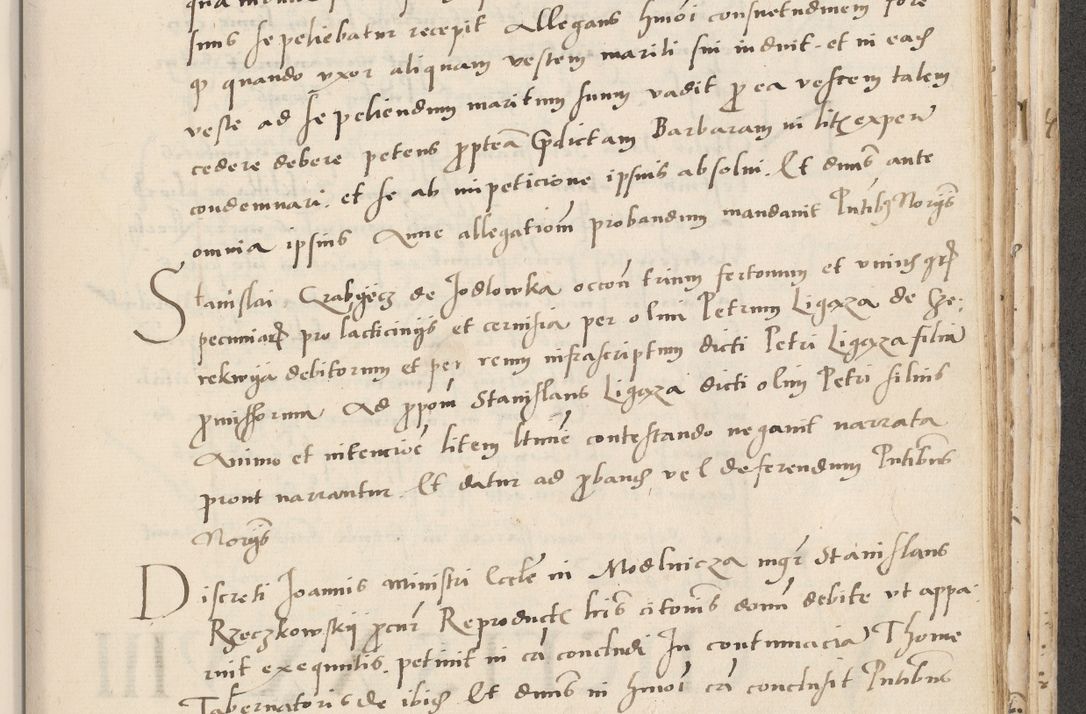 suus sepeliebatur recepit Allegans hmoi consuetudinem fore
qp quando vxor aliquam vestem mariti sui induit. et in each
veste ad sepeliendum maritum suum vadit pro ea vestem talem
cedere debere petens propterea predictam Barbaram in litis expen
condemnari. et se ab impeticione ipsius absolui. Et dnus ante
omnia ipsius Anne allegationem probandum mandauit Pntibus Norijs
Stanislai Grabyecz de Jodlowka occon trium fertonum et vnius
pecuniar pro lacticinijs et ceruisia per olim Petrum Ligaza de Sze:
rekwya debitorum et per reum infrascriptum dicti Petri Ligaza filiu
promissorum Ad propom Stanislaus Ligaza dicti olim Petri filius
Animo et intencioe litem ltime contestando negauit narrata
prout narrantur. Et datur ad proband vel deferendum Pntibus
Norijs
Discreti Joannis ministri Eccle in Modlnicza mgr Stanislaus
Rzeczkowskij procur Reproductis lris citonis domi debite vt appa:
ruit exequutis petiuit in ca concludi In contumacia Thome
Tabernatoris de ibid Et dnus in hmoi ca conclusit Pntibus